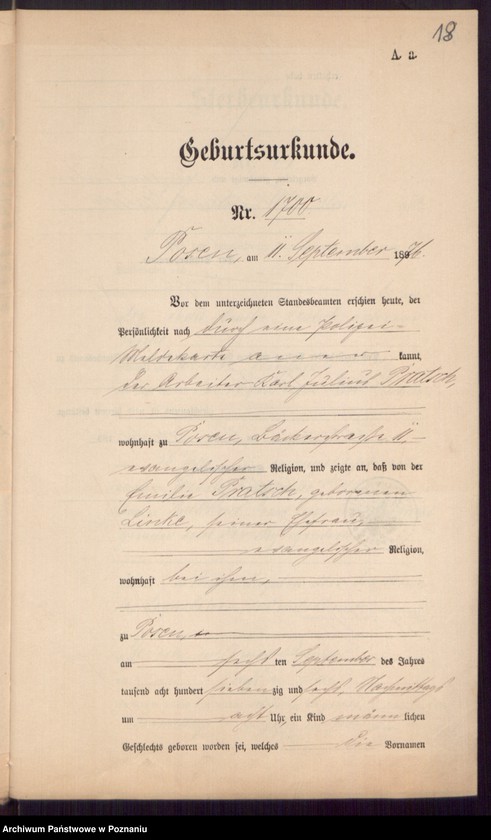 18
A. a.
Geburtsurkunde.
Nr. 1700
Posen, am 11. September 1876.
Vor dem unterzeichneten Standesbeamten erschien heute, der
Persönlichkeit nach durch eine Polizei-
Meldekarte aner kannt,
der Arbeiter Karl Julius Pratsch,
wohnhaft zu Posen, Bäckerstraße 11,
evangelischer Religion, und zeigte an, daß von der
Emilie Pratsch, geborenen
Linke, seiner Ehefrau,
evangelischer Religion,
wohnhaft bei ihm,
zu Posen,
am sechs ten September des Jahres
tausend acht hundert sieben zig und sechs, Nachmittags
um acht Uhr, ein Kind männ lichen
Geschlechts geboren worden sei, welches die Vornamen
Archiwum Państwowe w Poznaniu